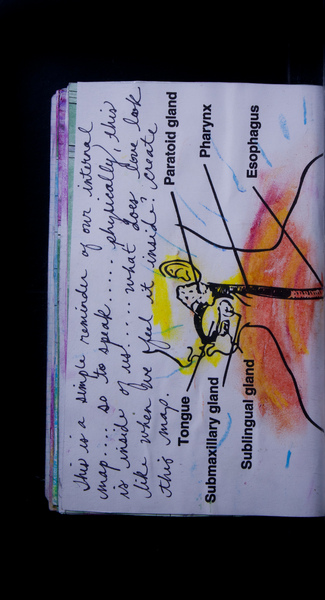 This is a simple reminder of our internal
map.... so to speak..... physically, this
is inside of us!..... what does love look
like when we feel it inside? Create
this map.
Paratoid gland
Pharynx
Esophagus
Tongue
Submaxillary gland
Sublingual gland